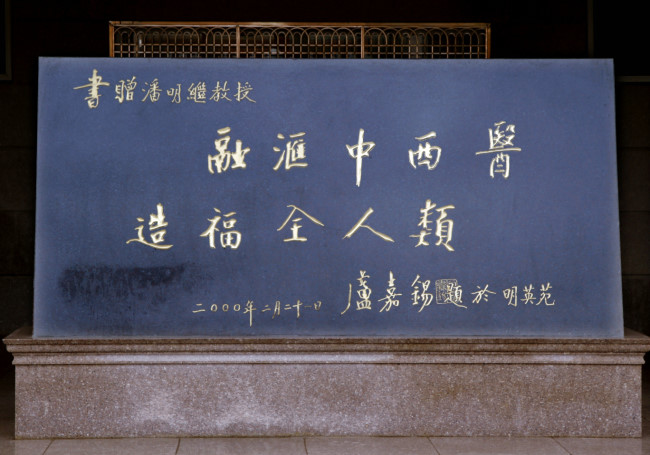 書贈潘明繼教授
融滙中西醫
造福全人類
二〇〇〇年二月二十一日 盧嘉錫題於明英苑